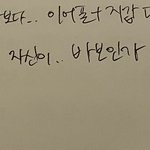 보다... 이어폴수 지갑
자신이.. 바보인가